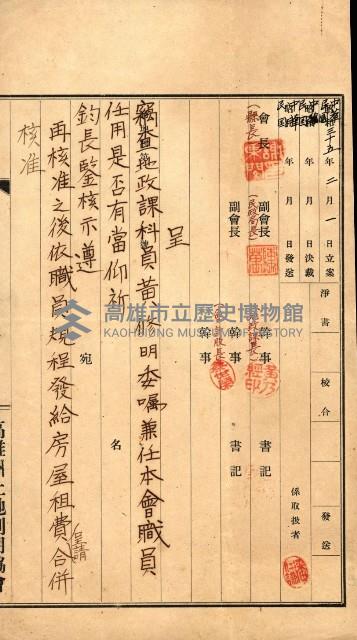 中華民國三十五年二月一日立案
中華民國 年 月 日決裁
中華民國 年 月 日發送
淨書
校合
發送
係取扱者
會長
(縣長)
副會長
(民政局長)
幹事
書記
副會長
幹事
幹事
書記
呈
竊查地政課科員黃修明委囑兼任本會職員
任用是否有當仰祈
鈞長鑒核示遵
宛
名
再核准之後依職員規程發給房屋租費合併
呈請
核准
高雄市立歷史博物館
KAOHSIUNG MUSEUM OF HISTORY
高雄州土地利用協會